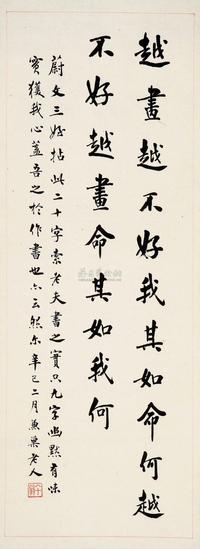 越畫越不好我其如命何越
不好越畫命其如我何
蔚文三姪拈此二十字索老夫書之實只九字幽默有味
實獲我心蓋吾之於作書也亦云然尔辛巳二月兼巢老人